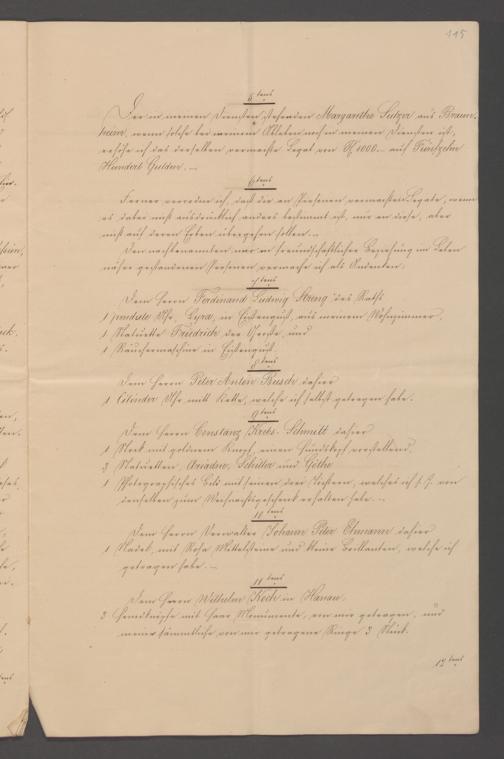 115
5 tens
Der in meinen Diensten stehenden Margarethe Sulzer aus Braun-
heim, wenn solche bei meinem Ableben noch in meinen Diensten ist,
erhöhe ich das derselben vermachte Legat von fl 1000.- auf Fünfzehn
Hundert Gulden. —
6 tens
Ferner verordne ich, daß die an Personen vermachten Legate, wenn
es dabei nicht ausdrücklich anders bestimmt ist, nur an diese, aber
nicht auf deren Erben übergehen sollen. —
Den nachbenannten, mir in freundschaftlicher Beziehung im Leben
näher gestandenen Personen, vermache ich als Andenken,
7 tens
Dem Herrn Ferdinand Ludwig des Raths
1 Uhr, Lyra, in Eisenguß, aus meinem Wohnzimmer,
1 Statuette Friedrich der Große, und
1 Rauchermaschine in Eisenguß.
8 tens
Dem Herrn Peter Anton Busch dahier
1 Cilinder Uhr mit Kette, welche ich selbst getragen habe.
9 tens
Dem Herrn Constanz Krebs-Schmitt dahier
1 Stock mit goldenem Knopf, einen Hundskopf vorstellend,
3 Statuetten, Ariadne, Schiller und Göthe
1 Photographisches Bild mit seinen drei Töchtern, welches ich s. Z. von
denselben zum Weihnachtsgeschenk erhalten habe. —
10 tens
Dem Herrn Verwalter Johann Peter dahier
1 Nadel, mit Rosa Mittelsteine und kleine Brillanten, welche ich
getragen habe. —
11 tens
Dem Herrn Wilhelm Koch in Hanau.
3 Hemdknöpfe mit Haar Monumente, von mir getragen, und
meine sämmtliche von mir getragene Ringe 3 Stück.
12 tens